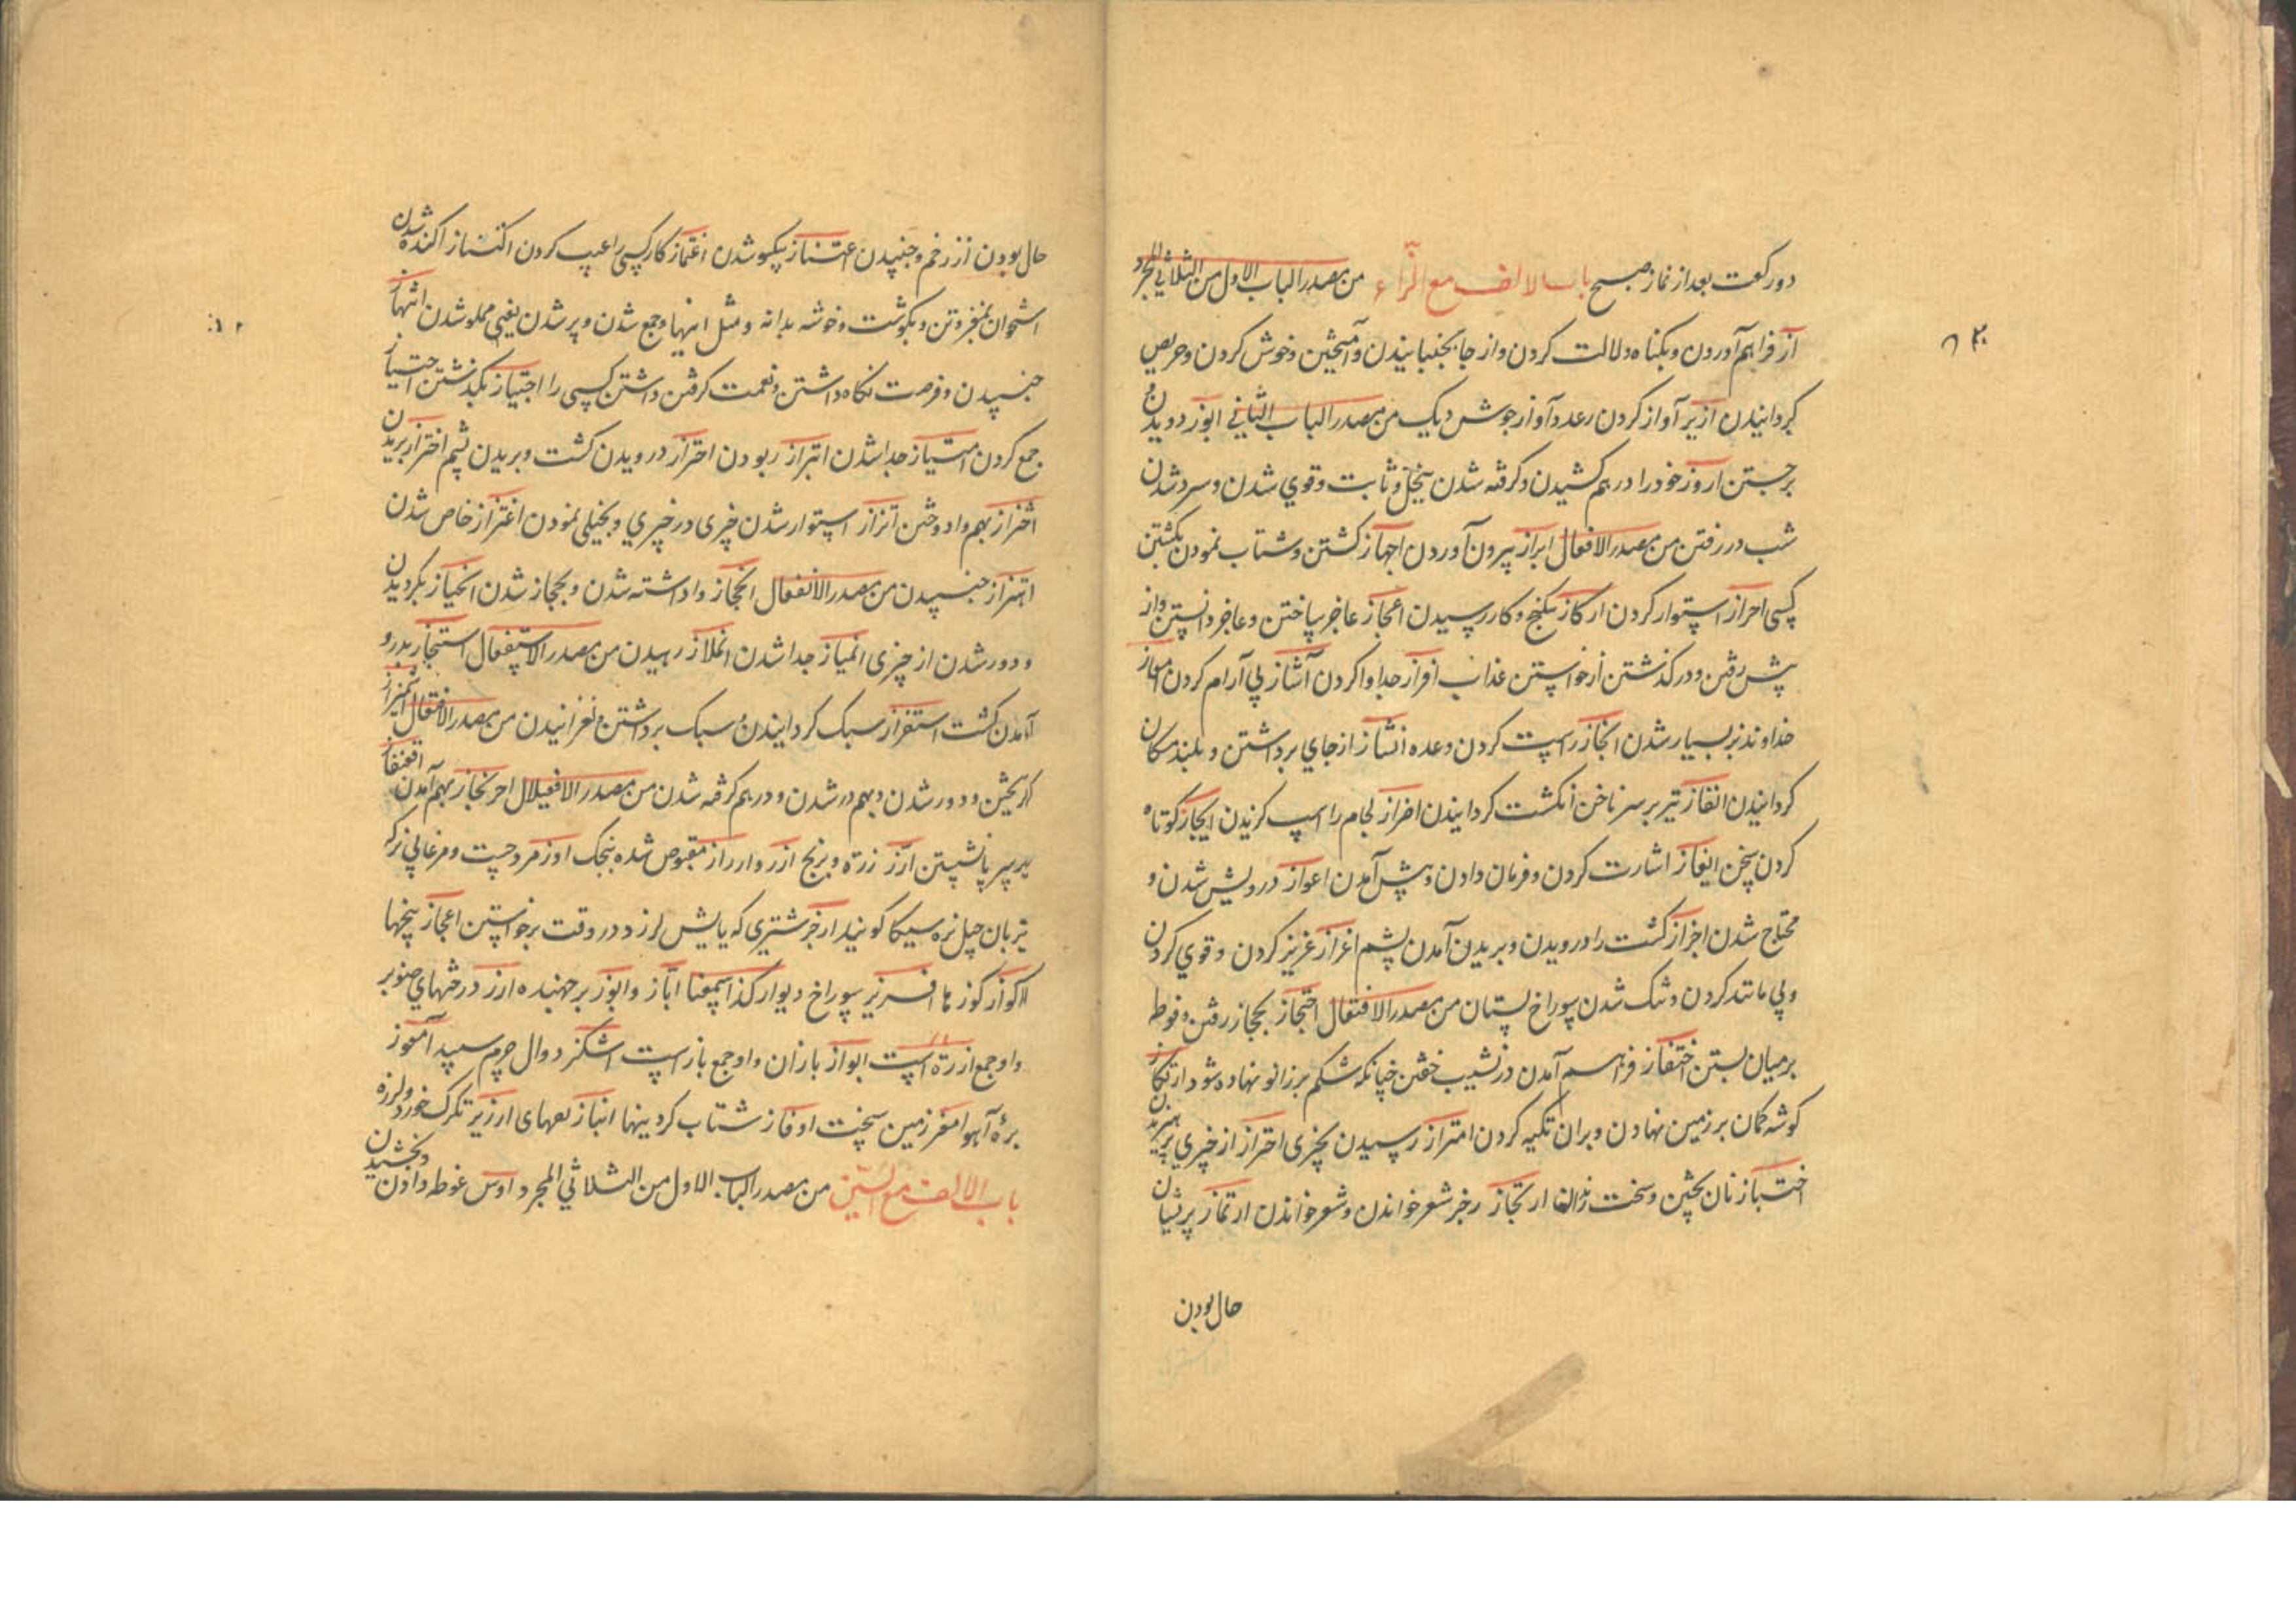 دو رکعت بعد از نماز صبح باب الالف مع الزاء من مصدر الباب الاول من الثلاثي المجرد
از فراهم آوردن و بکناه دلالت کردن و از جا بجنبانیدن و آمیختن و خوش کردن و حریص
کردانیدن ازیر آواز کردن رعد و آواز جوش دیک من مصدر الباب الثاني ابوز دویدن و
برجستن اروز خود را در هم کشیدن و کرفته شدن بخیل و ثابت و قوي شدن و سرد شدن
شب در رفتن من مصدر الافعال ابراز بیرون آوردن اجهاز کشتن و شتاب نمودن بکشتن
کسی احراز استوار کردن ارکاز بکنج و کاز رسیدن اعجاز عاجز ساختن و عاجز دانستن و از
پیش رفتن و در کذشتن از خواستن عذاب افراز جدا وا کردن آشاز بي آرام کردن
خداوند بز بسیار شدن انجاز راست کردن وعده انشاز از جاي برداشتن و بلند مکان
کردانیدن انفاز تیر بر سر ناخن انکشت کردانیدن اضراز لجام را اسپ کزیدن ایجاز کوتاه
کردن سخن ایعاز اشارت کردن و فرمان دادن و پیش آمدن اعواز درویش شدن و
محتاج شدن اجزاز کشت را درویدن و بریدن آمدن پشم اعزاز عزیز کردن و قوي کردن
و پي مانند کردن و تنک شدن سوراخ پستان من مصدر الافتعال احتجاز بحجاز رفتن و فوطه
بر میان بستن احتفاز فراهم آمدن در نشیب خفتن چنانکه شکم بر زانو نهاده شود ارتکاز
کوشه کمان بر زمین نهادن و بران تکیه کردن امتراز رسیدن بچیزی احتراز از چیزي پرهیزیدن
اختباز نان پختن و سخت راندن ارتجاز رجز شعر خواندن و شعر خواندن ارتماز پریشان
حال بودن
حال بودن از زخم و جنبیدن اعتناز یکسو شدن اغتماز کار کسي را عیب کردن اکتناز اکنده شدن
استخوان بمغز و تن و بکوشت و خوشه بدانه و مثل اینها و جمع شدن و پر شدن یعني مملو شدن انتهاز
جنبیدن و فرصت نکاه داشتن و نعمت کرفتن داشتن کسی را اجتیاز بکذشتن احتیاز
جمع کردن امتیاز جدا شدن ابتزاز ربودن احتزاز درویدن کشت و بریدن پشم اختزاز بریدن
اختراز بهم وا دوختن اتزاز استوار شدن چیزی در چیزي و بخیلي نمودن اعتزاز خاص شدن
اهتزاز جنبیدن من مصدر الانفعال انحجاز وا داشته شدن و بحجاز شدن انحیاز بکردیدن
و دور شدن از چیزی انمیاز جدا شدن انملاز رهیدن من مصدر الاستفعال استنجاز بدرو
آمدن کشت استفزاز سبک کردانیدن و سبک برداشتن و لغزانیدن من مصدر الافعلال اشمئزاز
کریختن و دور شدن و بهم در شدن و در هم کرفته شدن من مصدر الافعیلال احرنجاز بهم آمدن اقعنفاز
بر سر پا نشستن ارز زرّه و برنج ازرد وارراز مقبوض شده بنجک اوز مرد چست و مرغابي بزرکه
بزبان جیل نره سیکا کونید ارجز شتری که پایش لرزد در وقت برخواستن اعجاز بیخها
اکواز کوزها افریز سوراخ دیوار کذا سمعنا اباز و ابوز برجهنده ارز درختهاي صنوبر
و او جمع ارزة است ابواز بازان و او جمع باز است اشکز دوال چرم سپید آموز
برهٔ آهو امعز زمین سخت اوفاز شتاب کردنیها انباز لعبهای ارزیز تکرک خورد و لرزه
باب الالف مع السین من مصدر الباب الاول من الثلاثي المجرد اوس غوطه دادن و بخشیدن